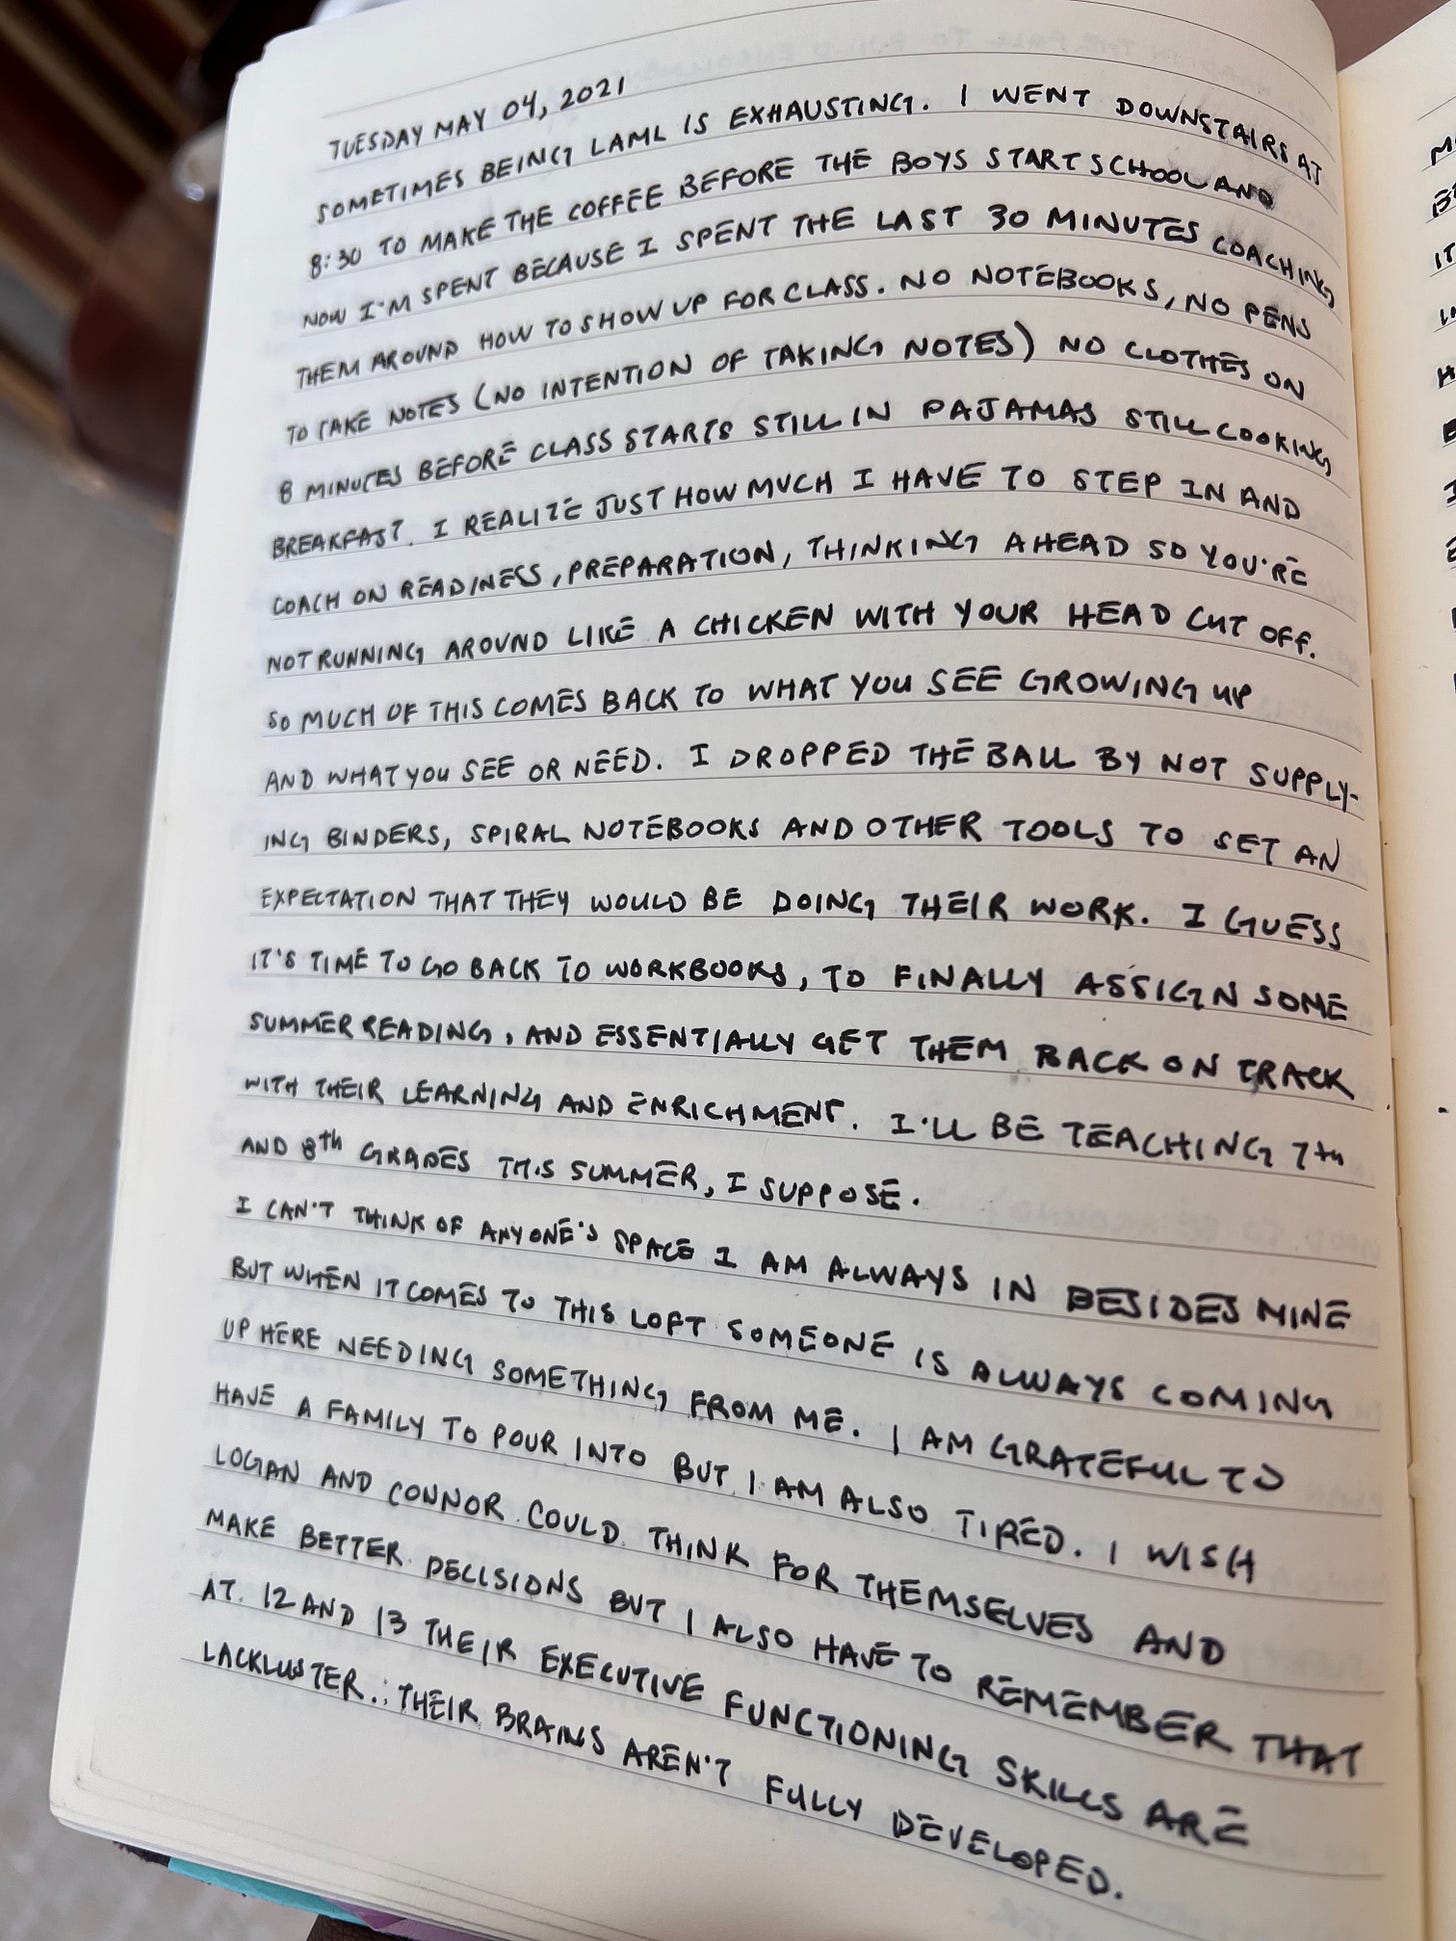 TUESDAY MAY 04, 2021
SOMETIMES BEING LAML IS EXHAUSTING. I WENT DOWNSTAIRS AT
8:30 TO MAKE THE COFFEE BEFORE THE BOYS START SCHOOL AND
NOW I'M SPENT BECAUSE I SPENT THE LAST 30 MINUTES COACHING
THEM AROUND HOW TO SHOW UP FOR CLASS. NO NOTEBOOKS, NO PENS
TO TAKE NOTES (NO INTENTION OF TAKING NOTES) NO CLOTHES ON
8 MINUTES BEFORE CLASS STARTS STILL IN PAJAMAS STILL COOKING
BREAKFAST. I REALIZE JUST HOW MUCH I HAVE TO STEP IN AND
COACH ON READINESS, PREPARATION, THINKING AHEAD SO YOU'RE
NOT RUNNING AROUND LIKE A CHICKEN WITH YOUR HEAD CUT OFF.
SO MUCH OF THIS COMES BACK TO WHAT YOU SEE GROWING UP
AND WHAT YOU SEE OR NEED. I DROPPED THE BALL BY NOT SUPPLY-
ING BINDERS, SPIRAL NOTEBOOKS AND OTHER TOOLS TO SET AN
EXPECTATION THAT THEY WOULD BE DOING THEIR WORK. I GUESS
IT'S TIME TO GO BACK TO WORKBOOKS, TO FINALLY ASSIGN SOME
SUMMER READING, AND ESSENTIALLY GET THEM BACK ON TRACK
WITH THEIR LEARNING AND ENRICHMENT. I'LL BE TEACHING 7th
AND 8th GRADES THIS SUMMER, I SUPPOSE.
I CAN'T THINK OF ANYONE'S SPACE I AM ALWAYS IN BESIDES MINE
BUT WHEN IT COMES TO THIS LOFT SOMEONE IS ALWAYS COMING
UP HERE NEEDING SOMETHING FROM ME. I AM GRATEFUL TO
HAVE A FAMILY TO POUR INTO BUT I AM ALSO TIRED. I WISH
LOGAN AND CONNOR COULD THINK FOR THEMSELVES AND
MAKE BETTER DECISIONS BUT I ALSO HAVE TO REMEMBER THAT
AT 12 AND 13 THEIR EXECUTIVE FUNCTIONING SKILLS ARE
LACKLUSTER. THEIR BRAINS AREN'T FULLY DEVELOPED.